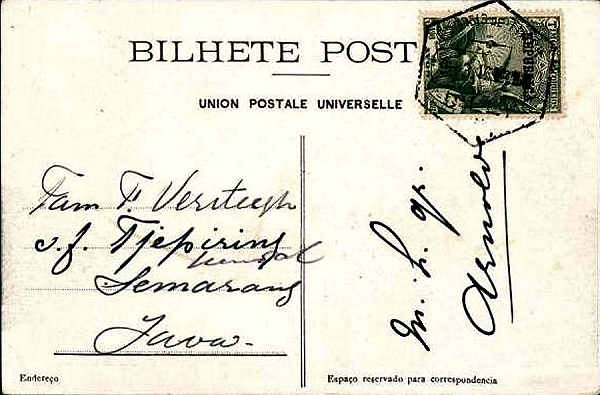 BILHETE POST
UNION POSTALE UNIVERSELLE
Fam F. Versteegh
s.f. Tjepiring
Kendal
Semarang
Java.
m. h. gr.
Arnold
Endereço
Espaço reservado para correspondencia